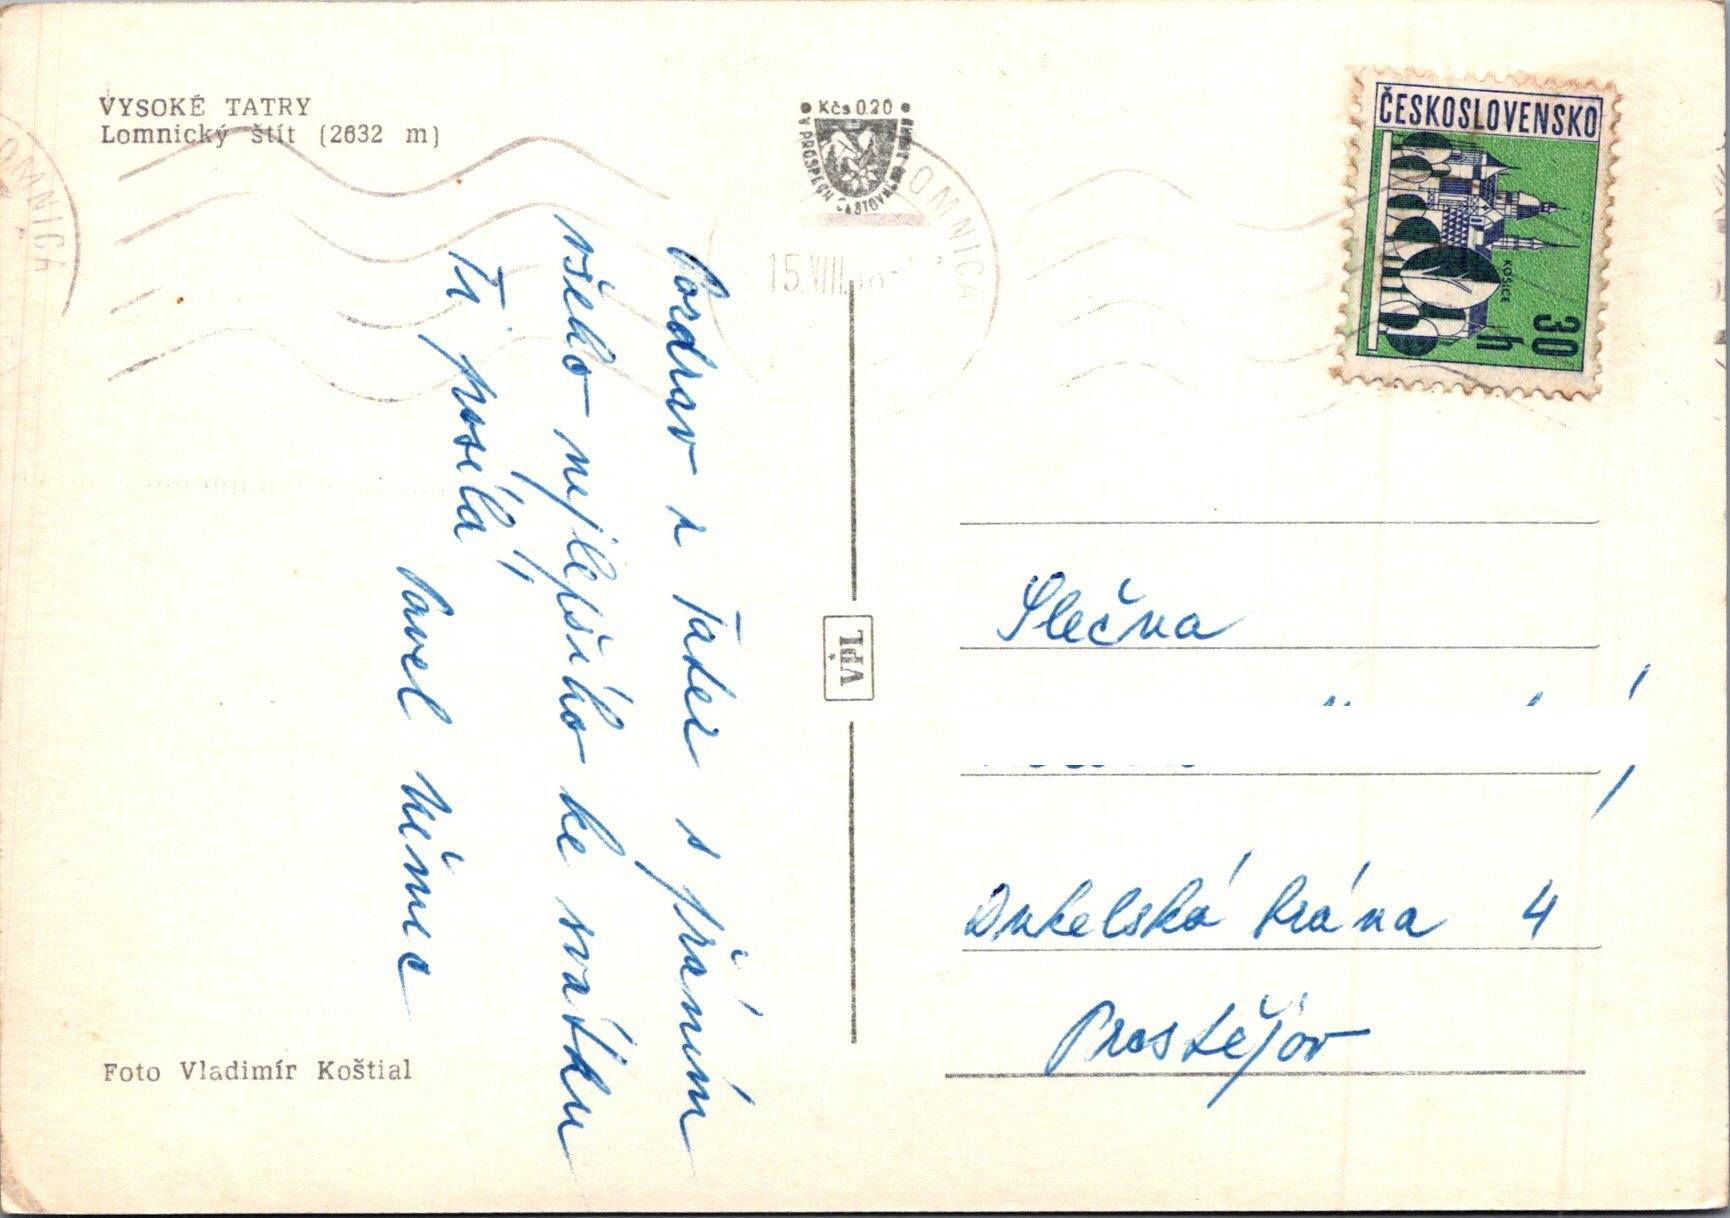 VYSOKÉ TATRY
Lomnický štít (2632 m)
Kčs 0.20
V PROSPĚCH
ČESKOSLOVENSKO
KOŠICE
30 h
OMNICA
OMNICA
15.VIII.
Pozdrav z Tater s přáním
všeho nejlepšího ke svátku
Ti posílá
Pavel Němec
VPL
Slečna
Dukelská brána 4
Prostějov
Foto Vladimír Koštial